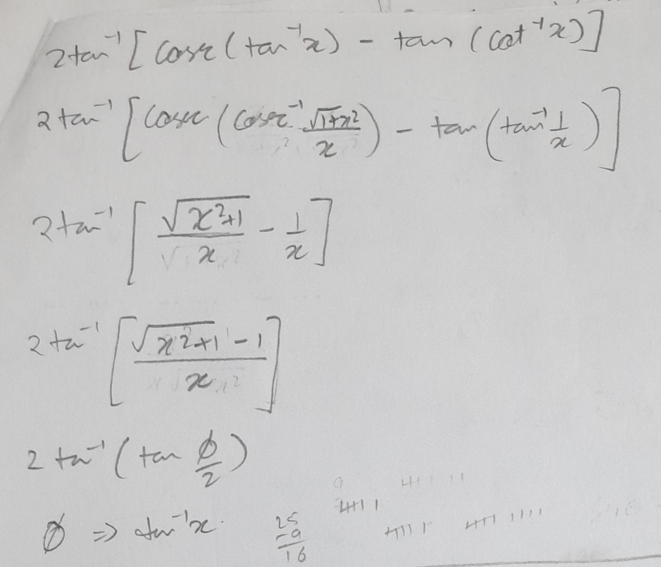 2tan⁻¹ [cosec (tan⁻¹x) - tan (cot⁻¹x)]
2tan⁻¹ [cosec (cosec⁻¹ √(1+x²)/x) - tan (tan⁻¹ 1/x)]
2tan⁻¹ [√(x²+1)/x - 1/x]
2ta⁻¹ [(√(x²+1) - 1)/x]
2 ta⁻¹ (tan ø/2)
ø ⇒ tan⁻¹x.
25
-9
16